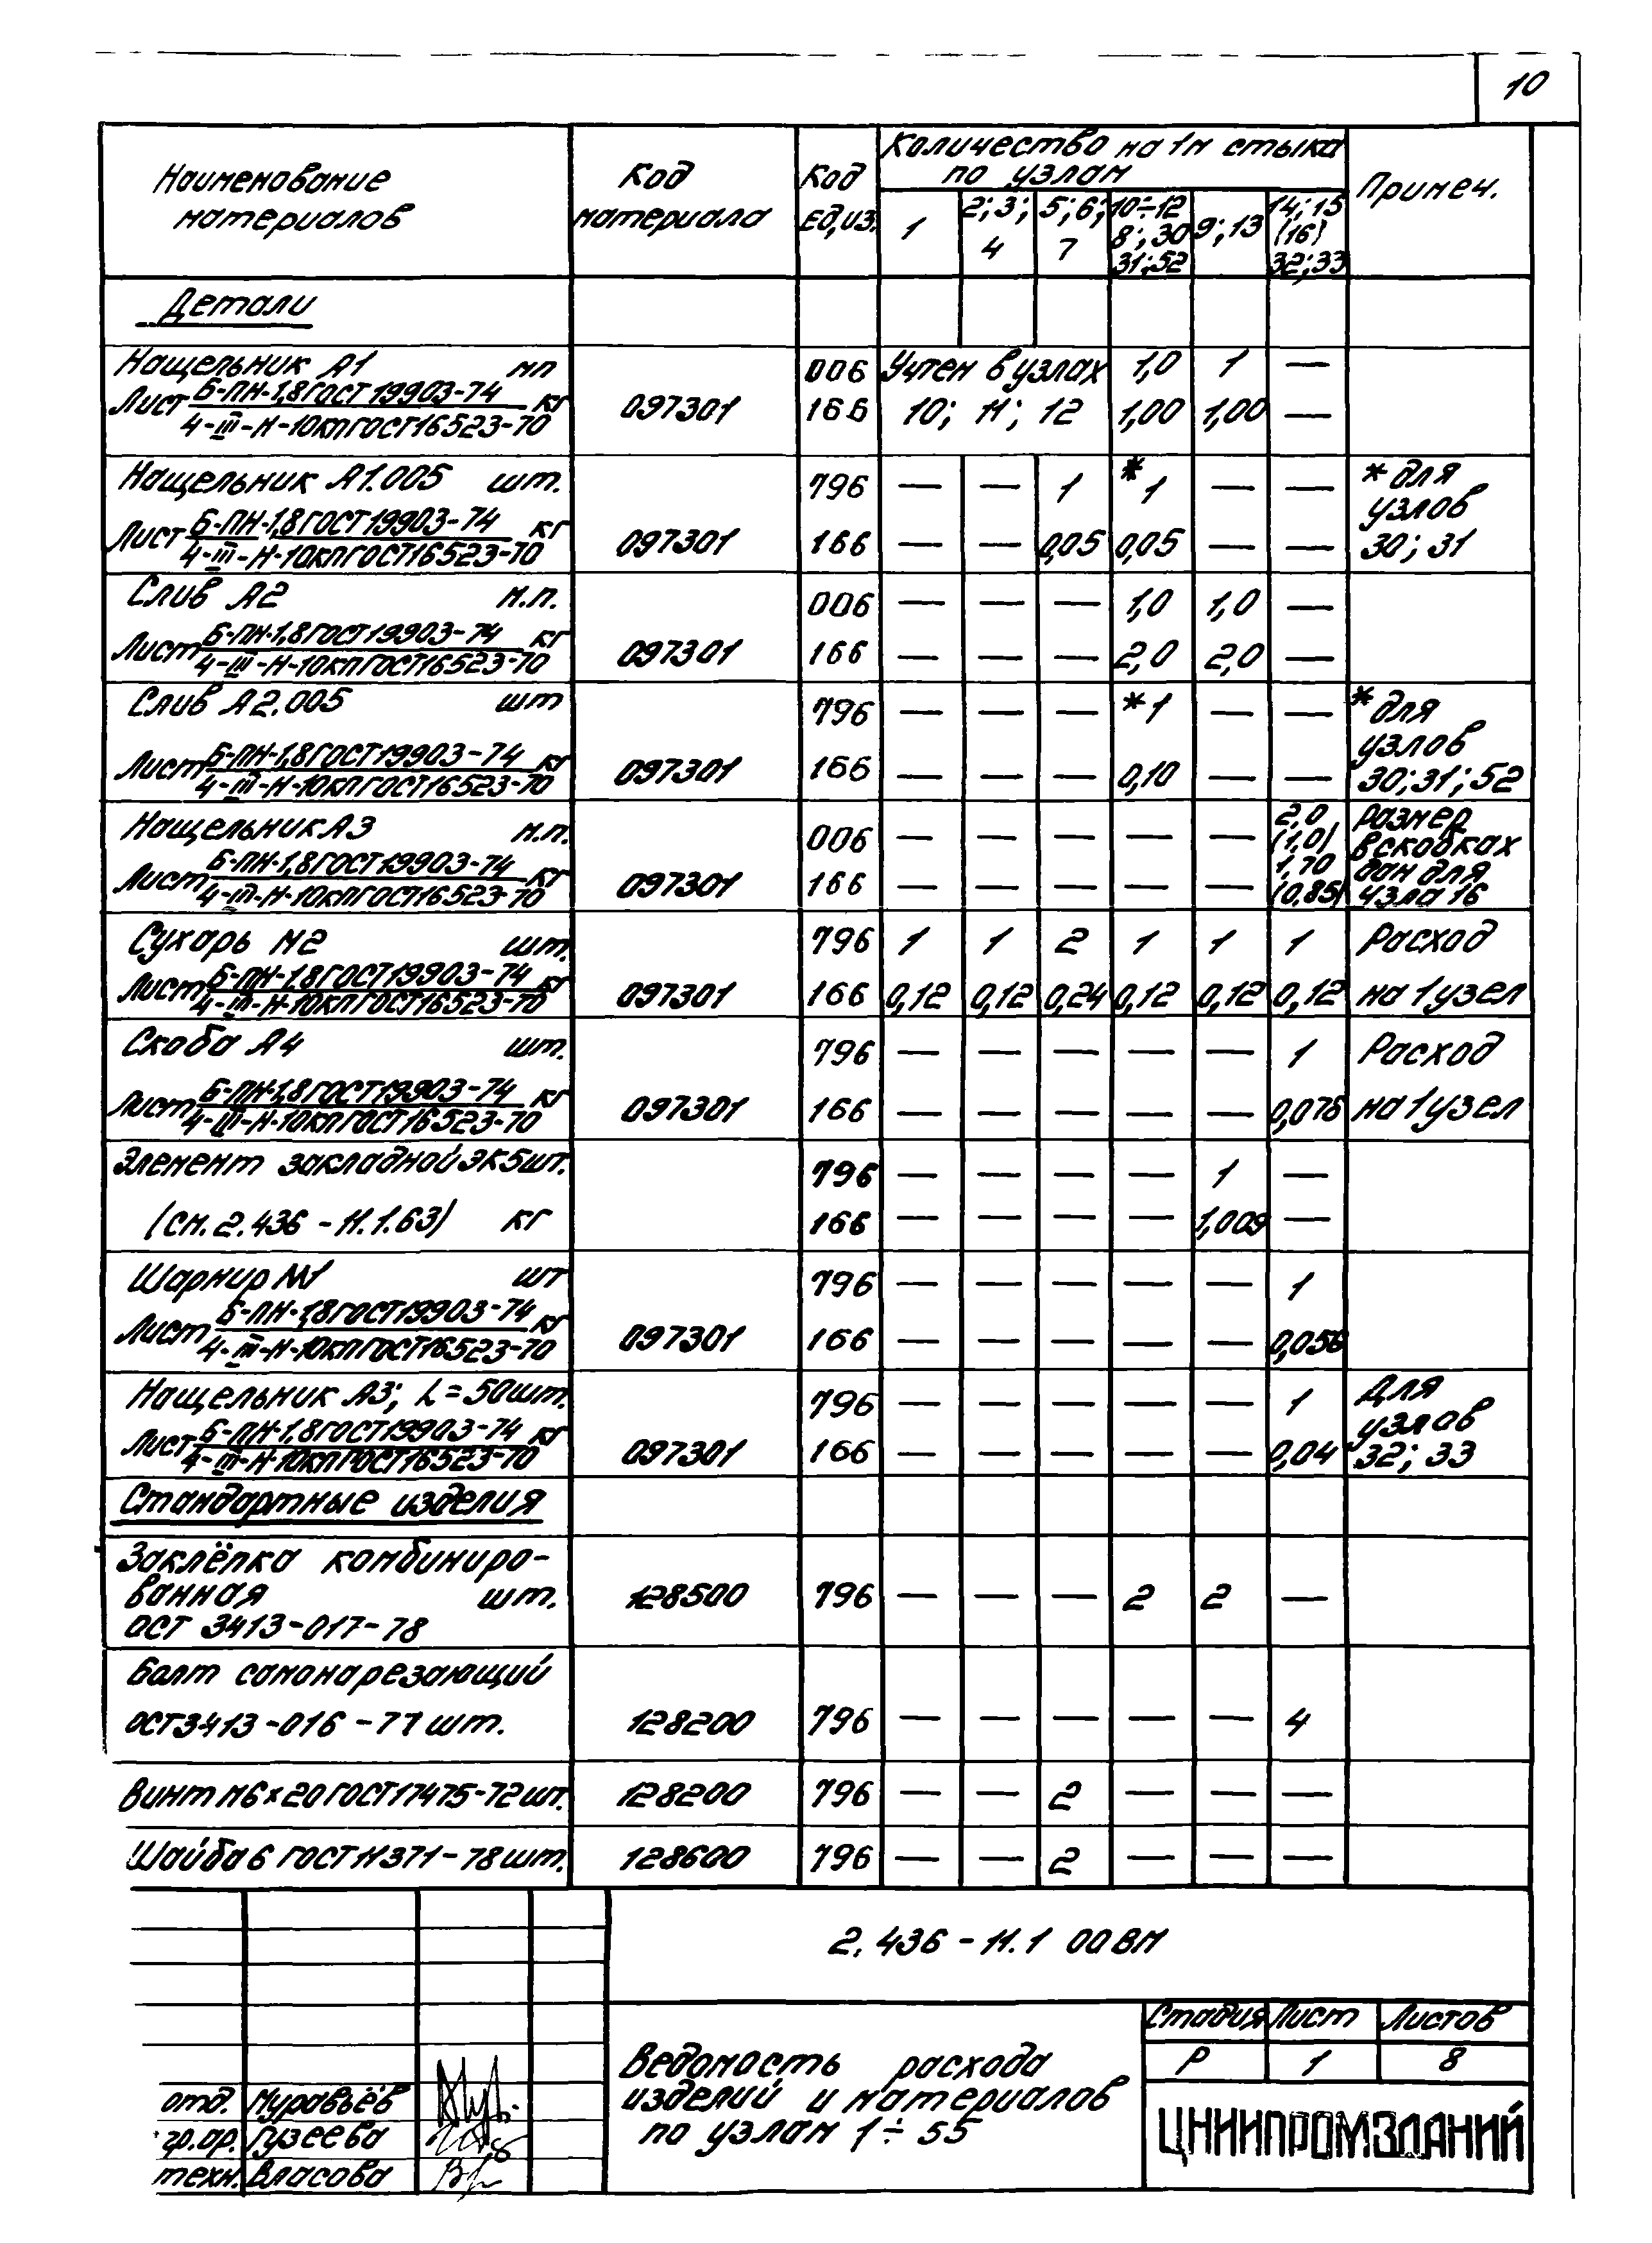 10
Наименование материалов
Код материала
Код Ед,из.
Количество на 1м стыка по узлам
Примеч.
1
2; 3; 4
5; 6; 7
10÷12 8; 30 31; 52
9; 13
14; 15 (16) 32; 33
Детали
Нащельник А1 мп 006 Учтен в узлах 1,0 1 —
Лист Б-ПН-1,8 ГОСТ 19903-74 / 4-III-Н-10кп ГОСТ 16523-70 кг 097301 166 10; 11; 12 1,00 1,00 —
Нащельник А1.005 шт. 796 — — 1 *1 — — * для узлов
Лист Б-ПН-1,8 ГОСТ 19903-74 / 4-III-Н-10кп ГОСТ 16523-70 кг 097301 166 — — 0,05 0,05 — — 30; 31
Слив А2 м.п. 006 — — — 1,0 1,0 —
Лист Б-ПН-1,8 ГОСТ 19903-74 / 4-III-Н-10кп ГОСТ 16523-70 кг 097301 166 — — — 2,0 2,0 —
Слив А2.005 шт 796 — — — *1 — — * для узлов
Лист Б-ПН-1,8 ГОСТ 19903-74 / 4-III-Н-10кп ГОСТ 16523-70 кг 097301 166 — — — 0,10 — — 30; 31; 52
Нащельник А3 м.п. 006 — — — — — 2,0 (1,0) размер в скобках
Лист Б-ПН-1,8 ГОСТ 19903-74 / 4-III-Н-10кп ГОСТ 16523-70 кг 097301 166 — — — — — 1,70 (0,85) дан для узла 16
Сухарь М2 шт. 796 1 1 2 1 1 1 Расход
Лист Б-ПН-1,8 ГОСТ 19903-74 / 4-III-Н-10кп ГОСТ 16523-70 кг 097301 166 0,12 0,12 0,24 0,12 0,12 0,12 на 1 узел
Скоба А4 шт. 796 — — — — — 1 Расход
Лист Б-ПН-1,8 ГОСТ 19903-74 / 4-III-Н-10кп ГОСТ 16523-70 кг 097301 166 — — — — — на 1 узел
Элемент закладной ЭК5 шт. 796 — — — — 1 —
(см. 2.436-11.1.63) кг 166 — — — — 1,009 —
Шарнир М1 шт 796 — — — — — 1
Лист Б-ПН-1,8 ГОСТ 19903-74 / 4-III-Н-10кп ГОСТ 16523-70 кг 097301 166 — — — — — 0,056
Нащельник А3; L=50 шт. 796 — — — — — 1 Для узлов
Лист Б-ПН-1,8 ГОСТ 19903-74 / 4-III-Н-10кп ГОСТ 16523-70 кг 097301 166 — — — — — 0,04 32; 33
Стандартные изделия
Заклёпка комбиниро-
ванная шт. 128500 796 — — — 2 2 —
ОСТ 3413-017-78
Болт самонарезающий
ОСТ 3413-016-77 шт. 128200 796 — — — — — 4
Винт М6×20 ГОСТ 17475-72 шт. 128200 796 — — 2 — — —
Шайба 6 ГОСТ 11371-78 шт. 128600 796 — — 2 — — —
2.436-11.1 00 ВМ
Ведомость расхода
изделий и материалов
по узлам 1÷55
Стадия Лист Листов
Р 1 8
ЦНИИПРОМЗДАНИЙ
отд. Муравьёв
гр.ар. Гузеева
техн. Власова